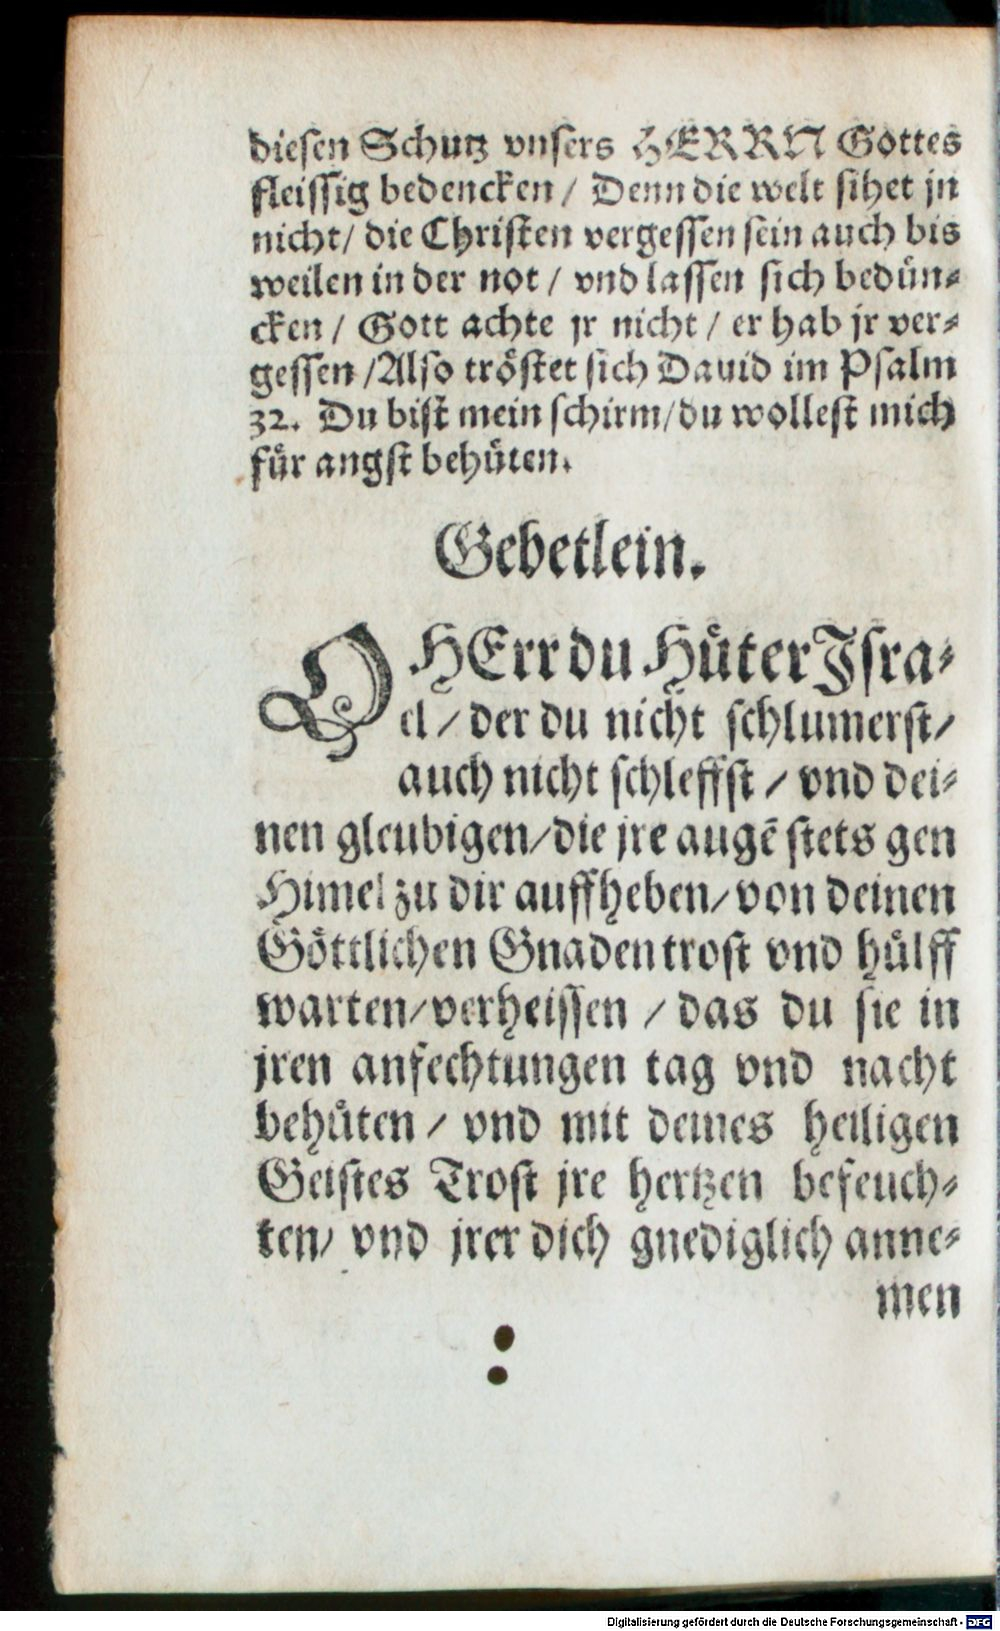 diesen Schutz vnsers HERRN Gottes
fleissig bedencken / Denn die welt sihet jn
nicht / die Christen vergessen sein auch bis
weilen in der not / vnd lassen sich bedün-
cken / Gott achte jr nicht / er hab jr ver-
gessen / Also tröstet sich Dauid im Psalm
32. Du bist mein schirm / du wollest mich
für angst behüten.
Gebetlein.
O HErr du Hüter Jsra-
el / der du nicht schlumerst /
auch nicht schleffst / vnd dei-
nen gleubigen / die jre augē stets gen
Himel zu dir auffheben / von deinen
Göttlichen Gnaden trost vnd hülff
warten / verheissen / das du sie in
jren anfechtungen tag vnd nacht
behüten / vnd mit deines heiligen
Geistes Trost jre hertzen befeuch-
ten / vnd jrer dich gnediglich anne-
men
Digitalisierung gefördert durch die Deutsche Forschungsgemeinschaft - DFG